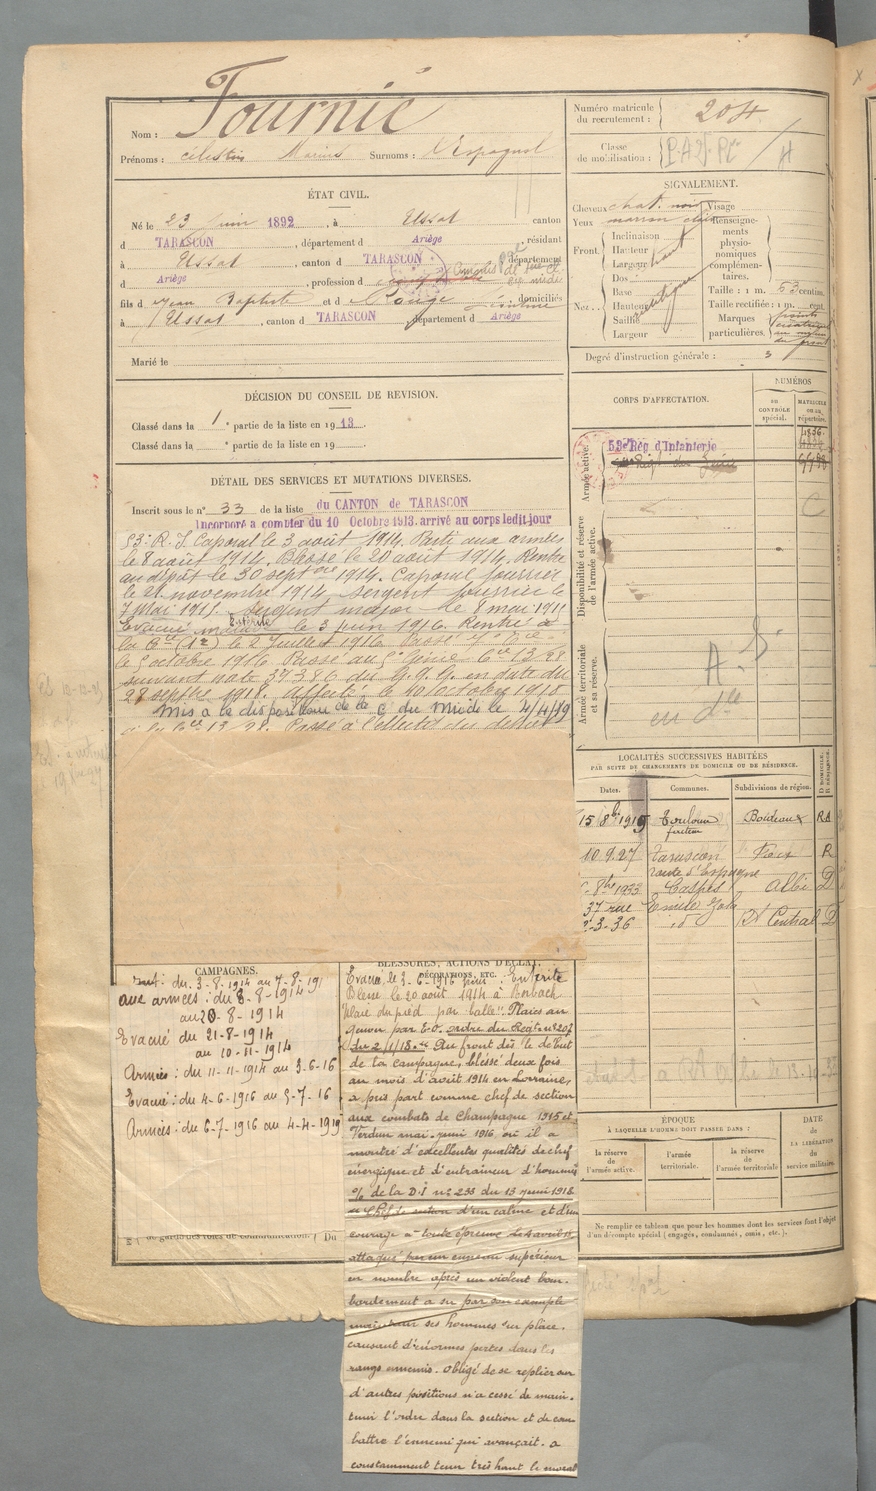 Nom : Fournié
Prénoms : célestin Marius Surnoms : Vespagnol
ÉTAT CIVIL.
Né le 23 juin 1892, à Ussat canton
d TARASCON, département d Ariège, résidant
à Ussat, canton d TARASCON département
d Ariège, profession d
fils d Jean Baptiste et d Rouge domiciliés
à Ussat, canton d TARASCON département d Ariège
Marié le
DÉCISION DU CONSEIL DE REVISION.
Classé dans la 1e partie de la liste en 1913.
Classé dans la e partie de la liste en 19
DÉTAIL DES SERVICES ET MUTATIONS DIVERSES.
Inscrit sous le n° 33 de la liste du CANTON de TARASCON
Incorporé à compter du 10 Octobre 1913. arrivé au corps ledit jour
53e R. I Caporal le 3 août 1914. Parti aux armées
le 8 août 1914. Blessé le 20 août 1914. Rentré
au dépôt le 30 septbre 1914. Caporal fourrier
le 21 novembre 1914 Sergent fourrier le
7 Mai 1915. Sergent major le 8 mai 1915
Evacué malade Entérite le 3 juin 1916. Rentré à
la Cie le 2 Juillet 1916. Passé
le 5 octobre 1916. Passé au Génie Cie 13/28
suivant note 37386 du G.Q.G. en date du
28 septbre 1918. affecté le 10 octobre 1918
Mis à la disposition de la Cie du Midi le 4/4/19
à la Cie 13/28. Passé à l'effectif du
CAMPAGNES.
Int: du 3-8-1914 au 7-8-191
aux armées : du 8-8-1914
au 20-8-1914
Evacué du 21-8-1914
au 10-11-1914
Armées : du 11-11-1914 au 3-6-16
Evacué : du 4-6-1916 au 5-7-16
Armées : du 6-7-1916 au 4-4-1919
de garde des voies de communication. Du
BLESSURES, ACTIONS D'ÉCLAT,
DÉCORATIONS, ETC.
Evacué le 3-6-1916 pour : Entérite
Blessé le 20 août 1914 à
"Plaie du pied par balle". Plaies au
genou par E.O. ordre du Regt n° 207
du 2/1/18. "Au front dès le début
de la campagne, blessé deux fois
au mois d'août 1914 en Lorraine,
a pris part comme chef de section
aux combats de Champagne 1915 et
Verdun mai-juin 1916 où il a
montré d'excellentes qualités de chef
énergique et d'entraineur d'hommes
% de la D.I n° 233 du 13 juin 1918
"Chef de section d'un calme et d'un
courage à toute épreuve
attaqué par un ennemi supérieur
en nombre après un violent bom-
bardement a su par son exemple
maintenir ses hommes sur place.
causant d'énormes pertes dans les
rangs ennemis. Obligé de se replier sur
d'autres positions n'a cessé de main-
tenir l'ordre dans la section et de com
battre l'ennemi qui avançait. a
constamment tenu très haut le moral
Numéro matricule
du recrutement : 204
Classe
de mobilisation :
SIGNALEMENT.
Cheveux chat. noir
Yeux marron clair
Front.
Inclinaison
Hauteur
Largeur haut
Nez...
Dos
Base
Hauteur
Saillie
Largeur
Visage
Renseigne-
ments
physio-
nomiques
complémen-
taires.
Taille : 1 m. 53 centim.
Taille rectifiée : 1 m. cent.
Marques
particulières.
Degré d'instruction générale : 3
CORPS D'AFFECTATION.
NUMÉROS
DU CONTRÔLE SPÉCIAL.
MATRICULE OU AU RÉPERTOIRE.
Armée active.
53e Rég. d'Infanterie
Disponibilité et réserve
de l'armée active.
Armée territoriale
et sa réserve.
LOCALITÉS SUCCESSIVES HABITÉES
PAR SUITE DE CHANGEMENTS DE DOMICILE OU DE RÉSIDENCE.
Dates. Communes. Subdivisions de région. D DOMICILE. R RÉSIDENCE.
15 8bre 1919 Toulouse Bordeaux
10.9.27 Tarascon Foix R
route d'Espagne
8bre 1933 Castres Albi D
37 rue Emile Zola
2-3-36 id Central D
ÉPOQUE
À LAQUELLE L'HOMME DOIT PASSER DANS :
la réserve de l'armée active.
l'armée territoriale.
la réserve de l'armée territoriale
DATE
de
LA LIBÉRATION
du
service militaire.
Ne remplir ce tableau que pour les hommes dont les services font l'objet
d'un décompte spécial (engagés, condamnés, omis, etc.).